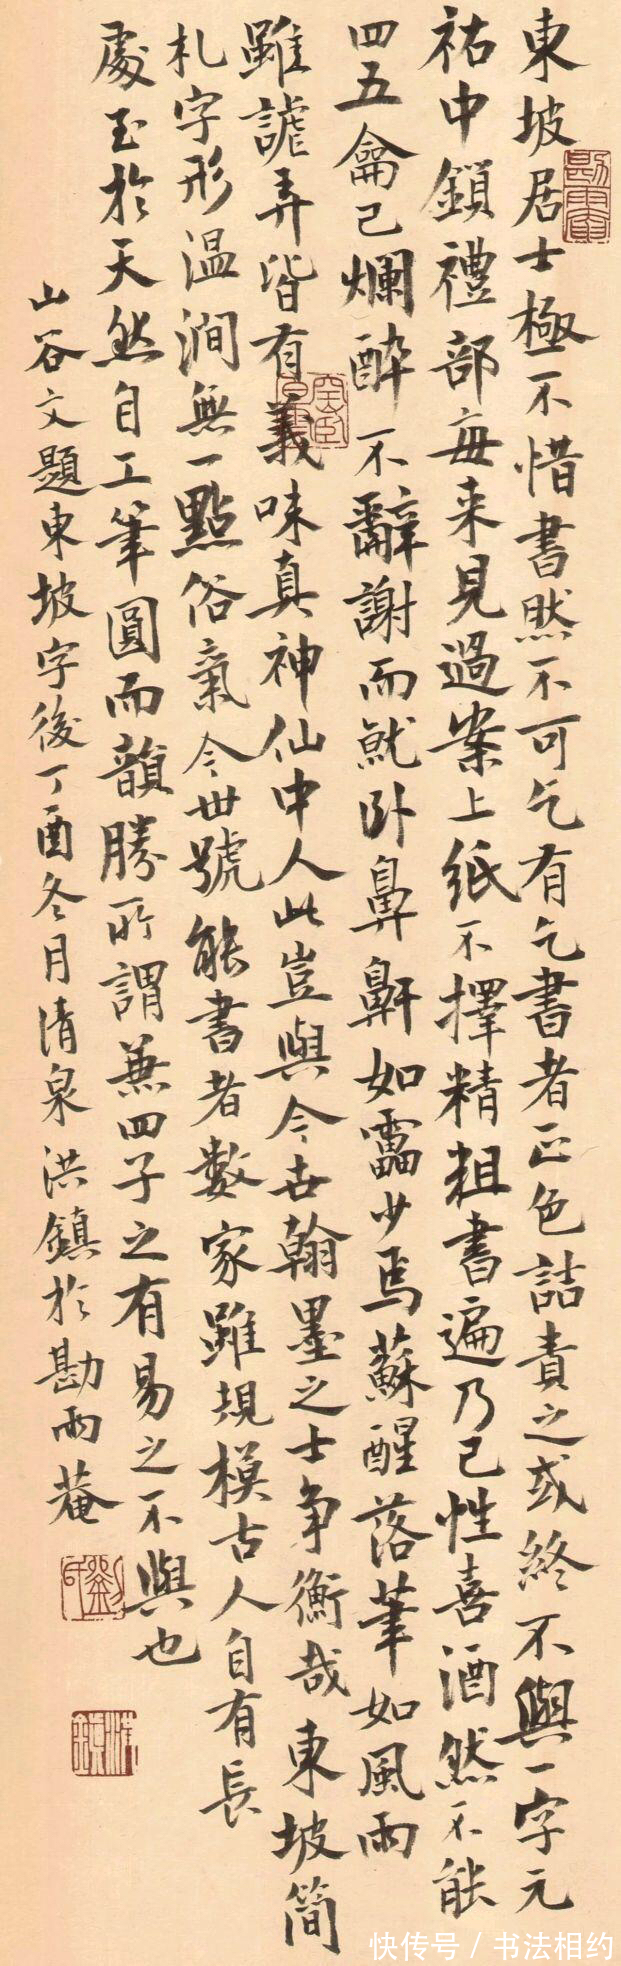 東坡居士極不惜書然不可乞有乞書者正色詰責之或終不與一字元
祐中鎖禮部每来見過案上紙不擇精粗書遍乃已性喜酒然不能
四五龠已爛醉不辭謝而就卧鼻鼾如雷少焉蘇醒落筆如風雨
雖謔弄皆有義味真神仙中人此豈與今世翰墨之士争衡哉東坡簡
札字形温潤無一點俗氣今世號能書者數家雖規模古人自有長
處至於天然自工筆圓而韻勝所謂兼四子之有易之不與也
山谷文題東坡字後丁酉冬月清泉洪鎮於勘雨菴
快传号 / 书法相约